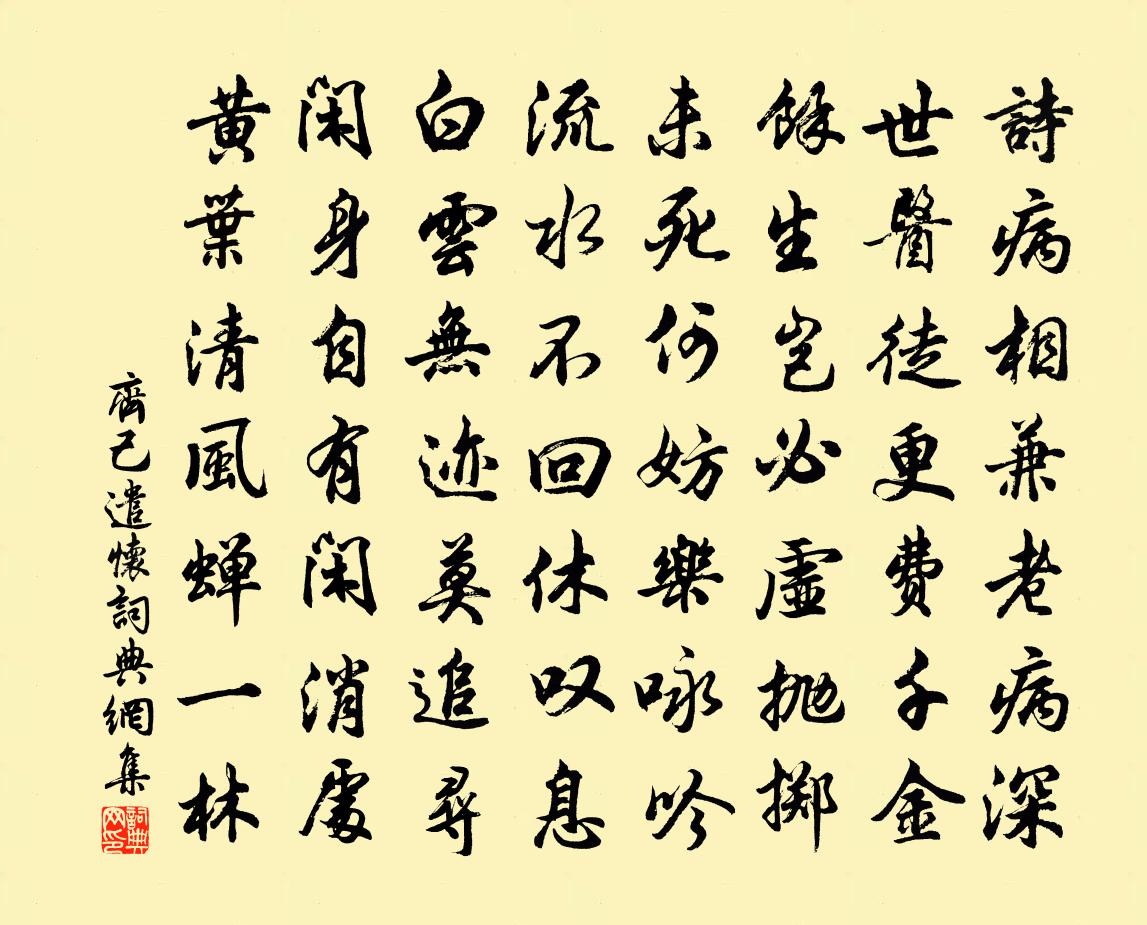 詩病相兼老病深
世醫徒更費千金
餘生豈必虛抛擲
未死何妨樂咏吟
流水不回休叹息
白雲無迹莫追尋
閑身自有閑消處
黃葉清風蝉一林
齊己遣懷詞典網集
詞典
网印